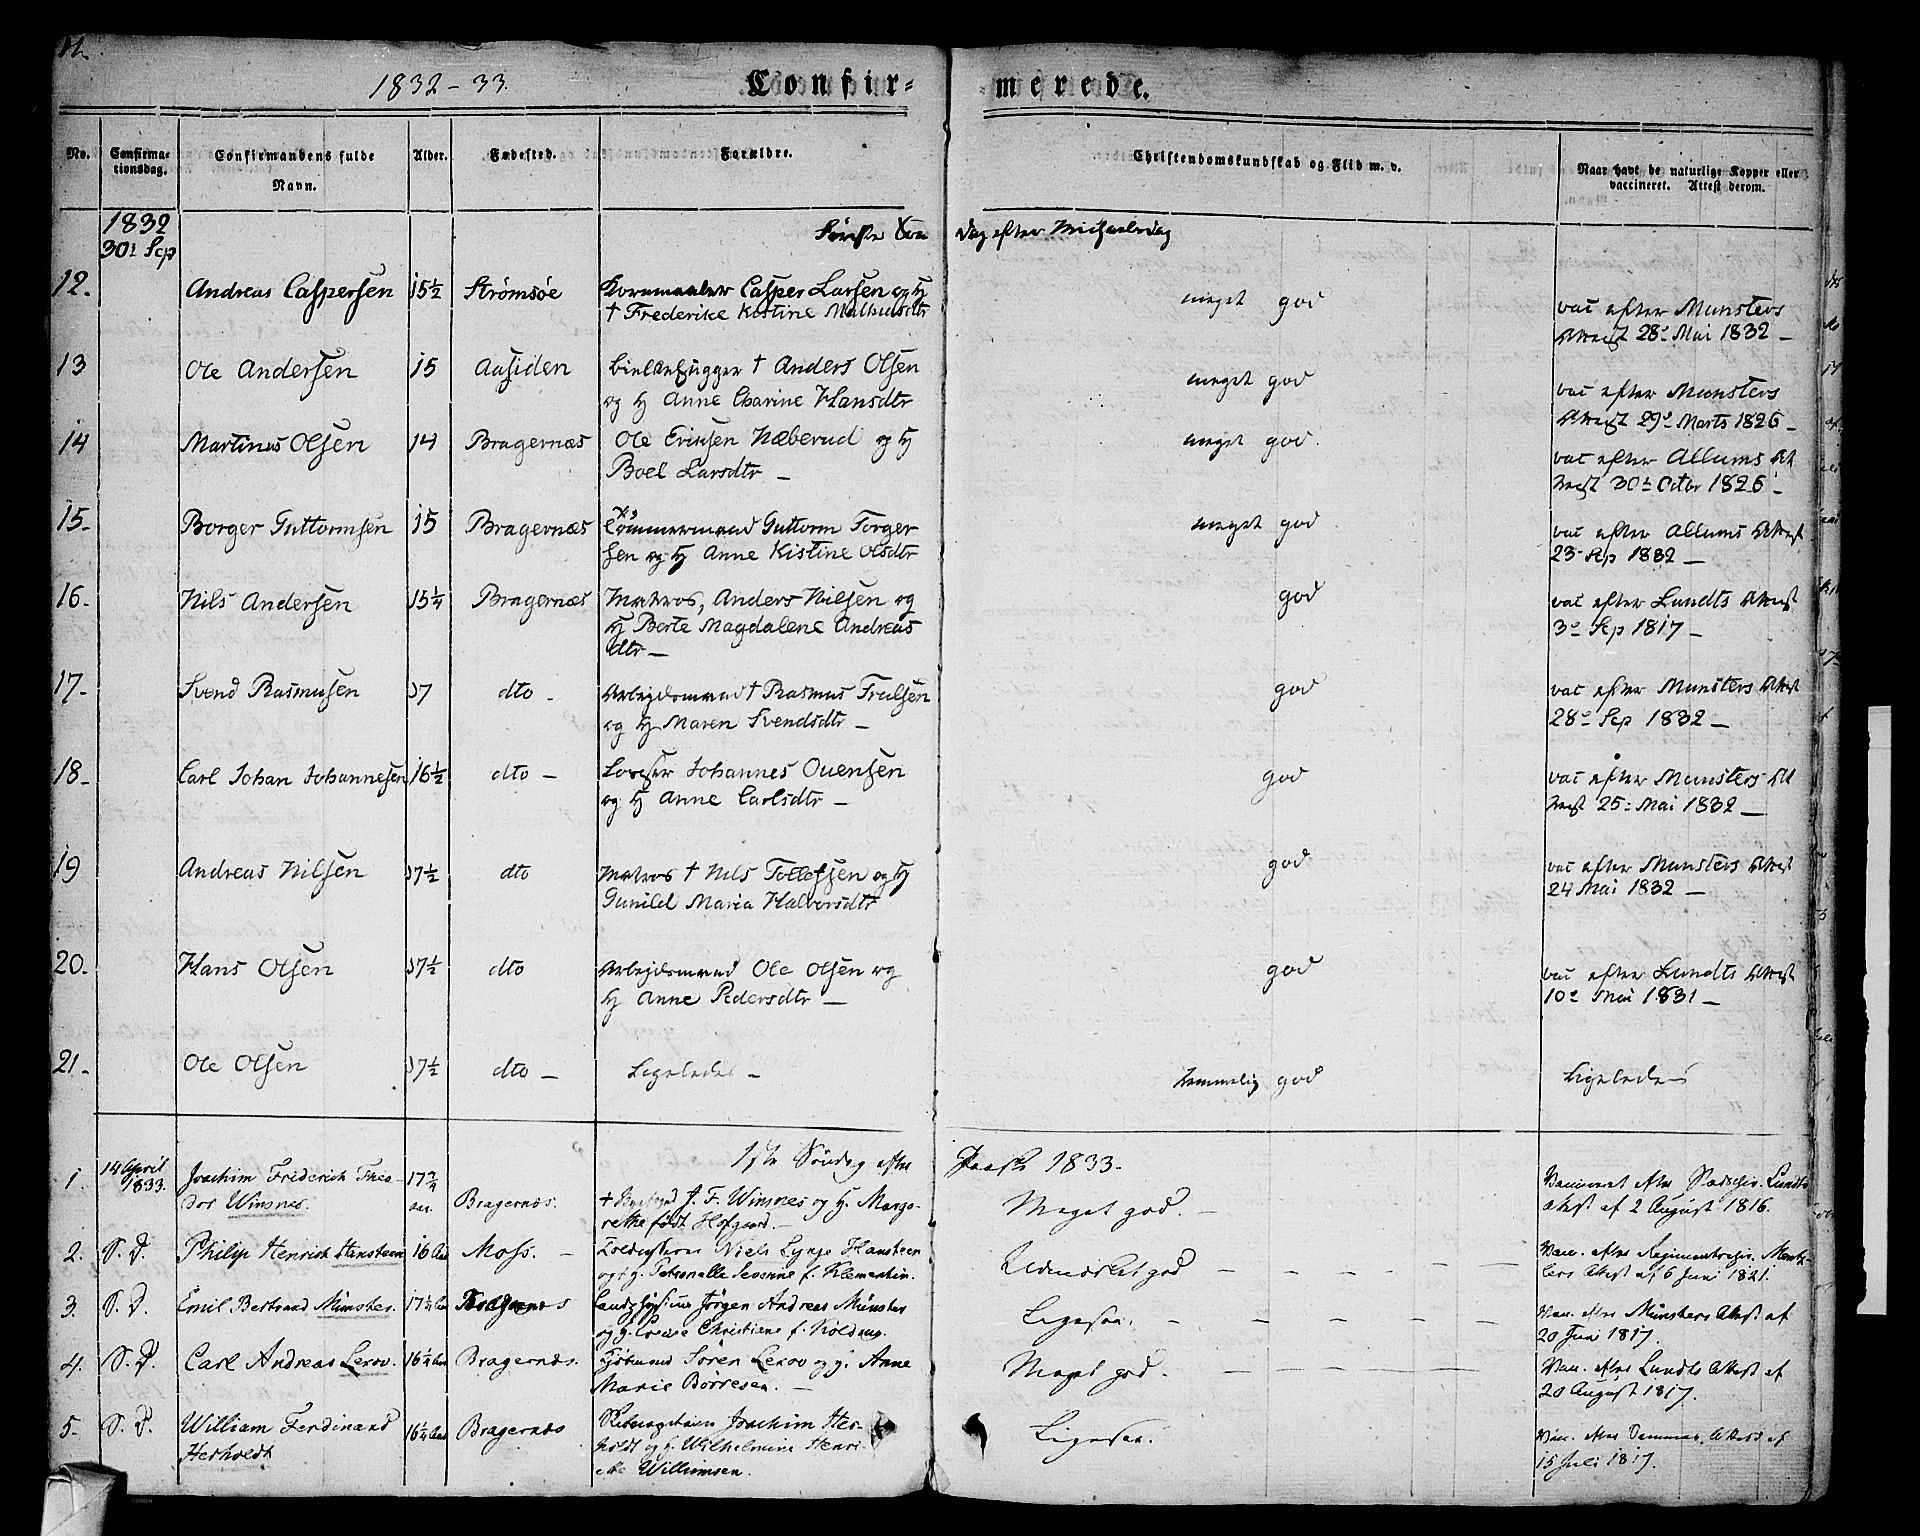 1832-33.
Confir=
=merede.
No.
Confirmationsdag.
Confirmandens fulde Navn.
Alder.
Fødested.
Forældre.
Christendomskundskab og Flid m. v.
Naar havt de naturlige Kopper eller vaccineret. Attest derom.
1832
30t Sep
Første Søn dag efter Michaelsdag
12. Andreas Caspersen 15½ Strømsøe Kornmaaler Casper Larsen og H meget god vac efter Munsters
† Frederike Kistine Mathusdtr Attest 28de Mai 1832 –
13 Ole Andersen 15 Aasiden Bielkehugger † Anders Olsen meget god vac efter Munsters
og H Anne Charine Hansdtr Attest 29de Marts 1826 –
14 Martinus Olsen 14 Bragernæs Ole Eriksen Næberud og H meget god. vac efter Allums At
Boel Larsdtr – test 30te Octbr 1826 –
15. Borger Guttormsen 15 Bragernæs Tømmermand Guttorm Torger meget god vac efter Allums Attest
sen og H Anne Kistine Olsdtr 23 Sep 1832 –
16. Nils Andersen 15¼ Bragernæs Matros, Anders Nilsen og god vac efter Lundts Attest
H Berte Magdalene Andreas 3de Sep 1817 –
dtr –
17. Svend Rasmusen 17 dto – Arbejdsmand † Rasmus Trulsen god vac efter Munsters Attest
og H Maren Svendsdtr – 28de Sep 1832 –
18. Carl Johan Johannesen 16½ dto – Johannes Ouensen god vac efter Munsters At
og H Anne Carlsdtr – test 25: Mai 1832 –
19 Andreas Nilsen 17½ dto Matros † Nils Tollefsen og H god vac efter Munsters Attest
Gunild Maria Halvorsdtr 24 Mai 1832 –
20. Hans Olsen 17½ dto Arbejdsmand Ole Olsen og god vac efter Lundts Attest
H Anne Pedersdtr – 10de Mai 1831 –
21. Ole Olsen 17½ dto – Ligeledes – temmelig god Ligeledes
1ste Søndag efter Paaske 1833.
1. 14 April 1833. Joachim Friderich Theo- 17¾ Vaccineret efter Lundts
dor Winsnes. aar. Bragernæs. † Byfoged J. F. Winsnes og H. Marga- Meget god. – Attest af 2 August 1816.
rethe født Hofgaard. –
2. S. D. Philip Henrich Hansteen 16 Aar Moss. – Niels Lynge Hansteen Udmærket god – – – – – Vac. efter Regimentschir. Mentz-
og H. Petronelle Severine f. Klementin. lers Attest af 6 Juni 1821.
3. S. D. Emil Bertrand Münster. 17¼ Aar Bragernæs Landphysicus Jørgen Andreas Münster Ligesaa. – – – – – Vac. efter Münsters Attest af
og H. Christiane f. Kolderup. 20 Juni 1817.
4. S. D. Carl Andreas Lerov. 16¼ Aar Bragernæs. Søren Lerov og H. Anne Meget god. – – – – – Vac. efter Lundts Attest af
Marie Børresen. – 20 August 1817.
5. S. D. William Ferdinand 16¼ Aar Bragernæs Joachim Her- Ligesaa. Vac. efter Attest af
Herholdt holdt og H. Wilhelmine Henri- 15 Juli 1817.
ette Willumsen.